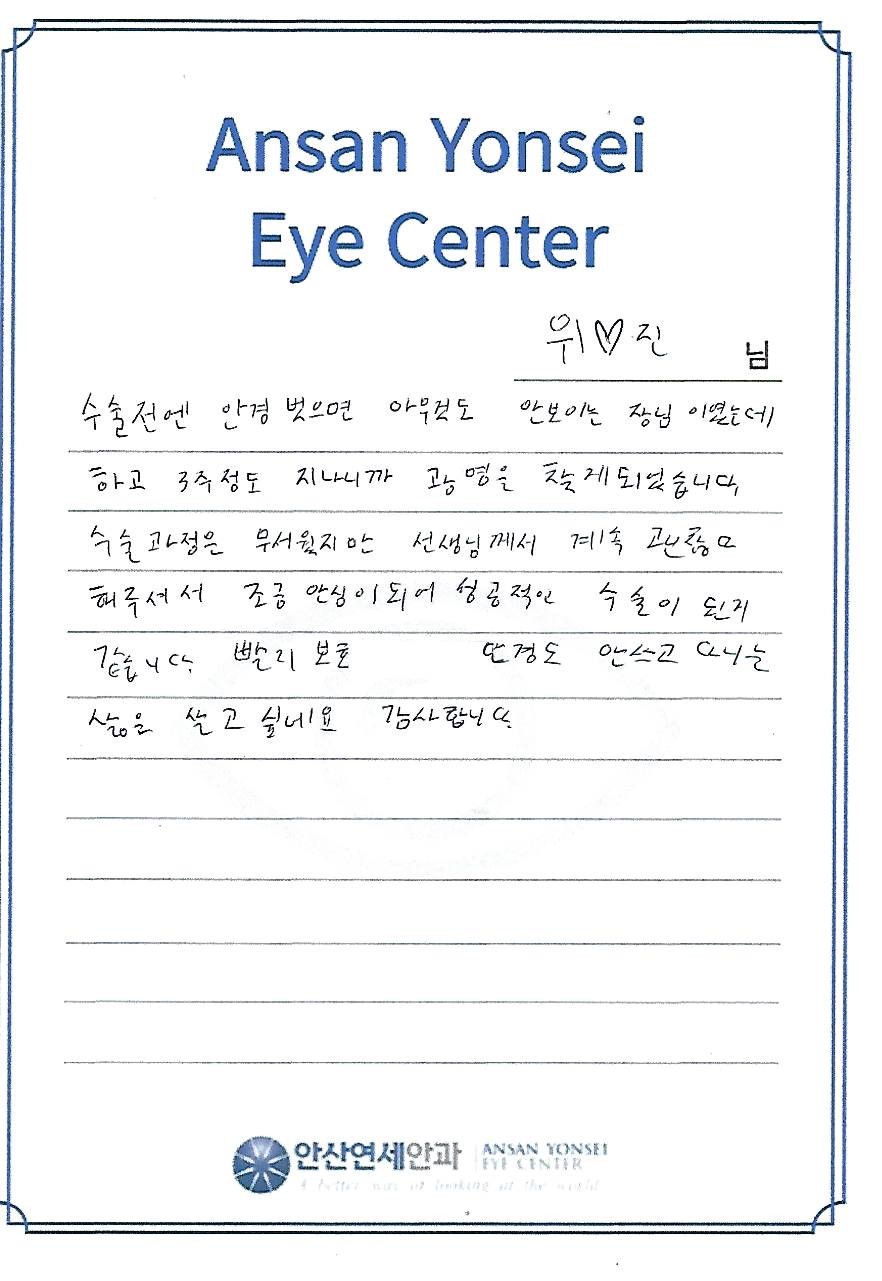 Ansan Yonsei
Eye Center
위♡진 님
수술전엔 안경 벗으면 아무것도 안보이는 장님 이였는데
하고 3주정도 지나니까 광명을 찾게되었습니다
수술과정은 무서웠지만 선생님께서 계속
해주셔서 조금 안심이되어 성공적인 수술이 된거
같습니다. 빨리 보호 안경도 안쓰고 다니는
삶을 살고 싶네요 감사합니다.
안산연세안과 ANSAN YONSEI
EYE CENTER
A better way of looking at the world